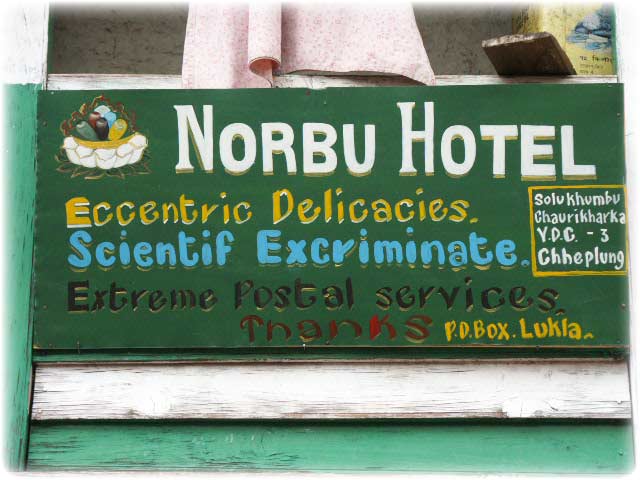 NORBU HOTEL
Eccentric Delicacies.
Scientif Excriminate.
Extreme Postal services.
Thanks P.O.Box. Lukla.
Solukhumbu
Chaurikharka
V.D.C. - 3
Chheplung